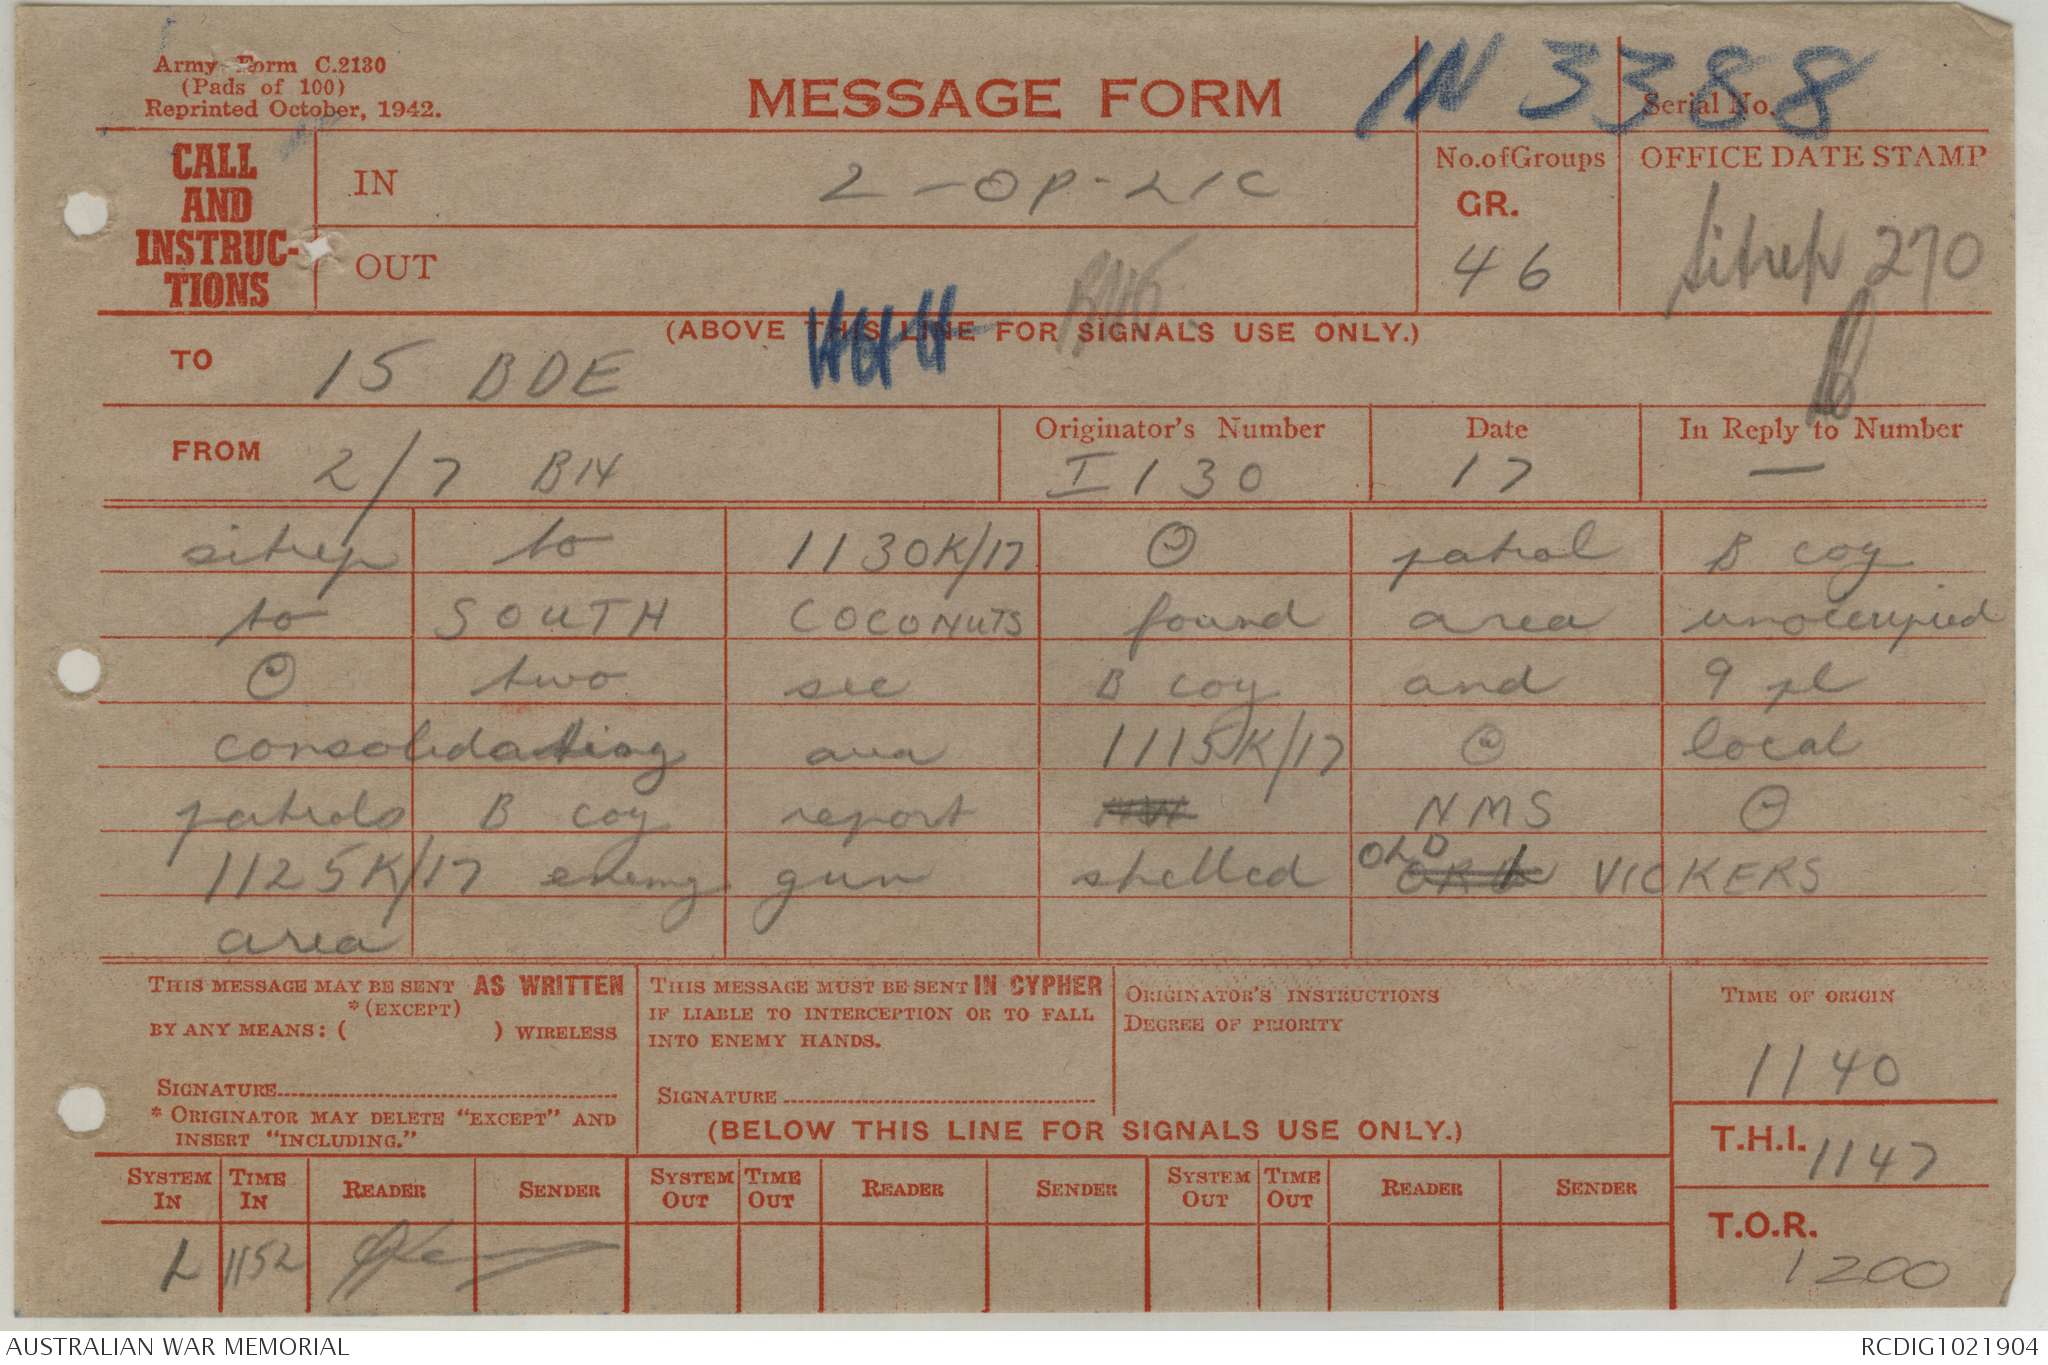 Army Form C.2130
(Pads of 100)
Reprinted October, 1942.
MESSAGE FORM
IN 3388
Serial No.
CALL AND INSTRUC-TIONS
IN 2 - OP - L/C
OUT
No. of Groups GR. 46
OFFICE DATE STAMP
Sitrep 270
(ABOVE THIS LINE FOR SIGNALS USE ONLY.)
TO 15 BDE
FROM 2/7 BN
Originator's Number I 130
Date 17
In Reply to Number —
sitrep to 1130K/17 ⊙ patrol B coy
to SOUTH COCONUTS found area unoccupied
⊙ two sec B coy and 9 pl
consolidating area 1115K/17 ⊙ local
patrols B coy report NMS ⊙
1125K/17 enemy gun shelled OLD VICKERS
area
THIS MESSAGE MAY BE SENT AS WRITTEN
*(EXCEPT)
BY ANY MEANS: ( ) WIRELESS
SIGNATURE
* ORIGINATOR MAY DELETE "EXCEPT" AND
INSERT "INCLUDING."
THIS MESSAGE MUST BE SENT IN CYPHER
IF LIABLE TO INTERCEPTION OR TO FALL
INTO ENEMY HANDS.
SIGNATURE
ORIGINATOR'S INSTRUCTIONS
DEGREE OF PRIORITY
TIME OF ORIGIN
1140
(BELOW THIS LINE FOR SIGNALS USE ONLY.)
T.H.I. 1147
T.O.R. 1200
SYSTEM IN TIME IN READER SENDER SYSTEM OUT TIME OUT READER SENDER SYSTEM OUT TIME OUT READER SENDER
L 1152
AUSTRALIAN WAR MEMORIAL
RCDIG1021904